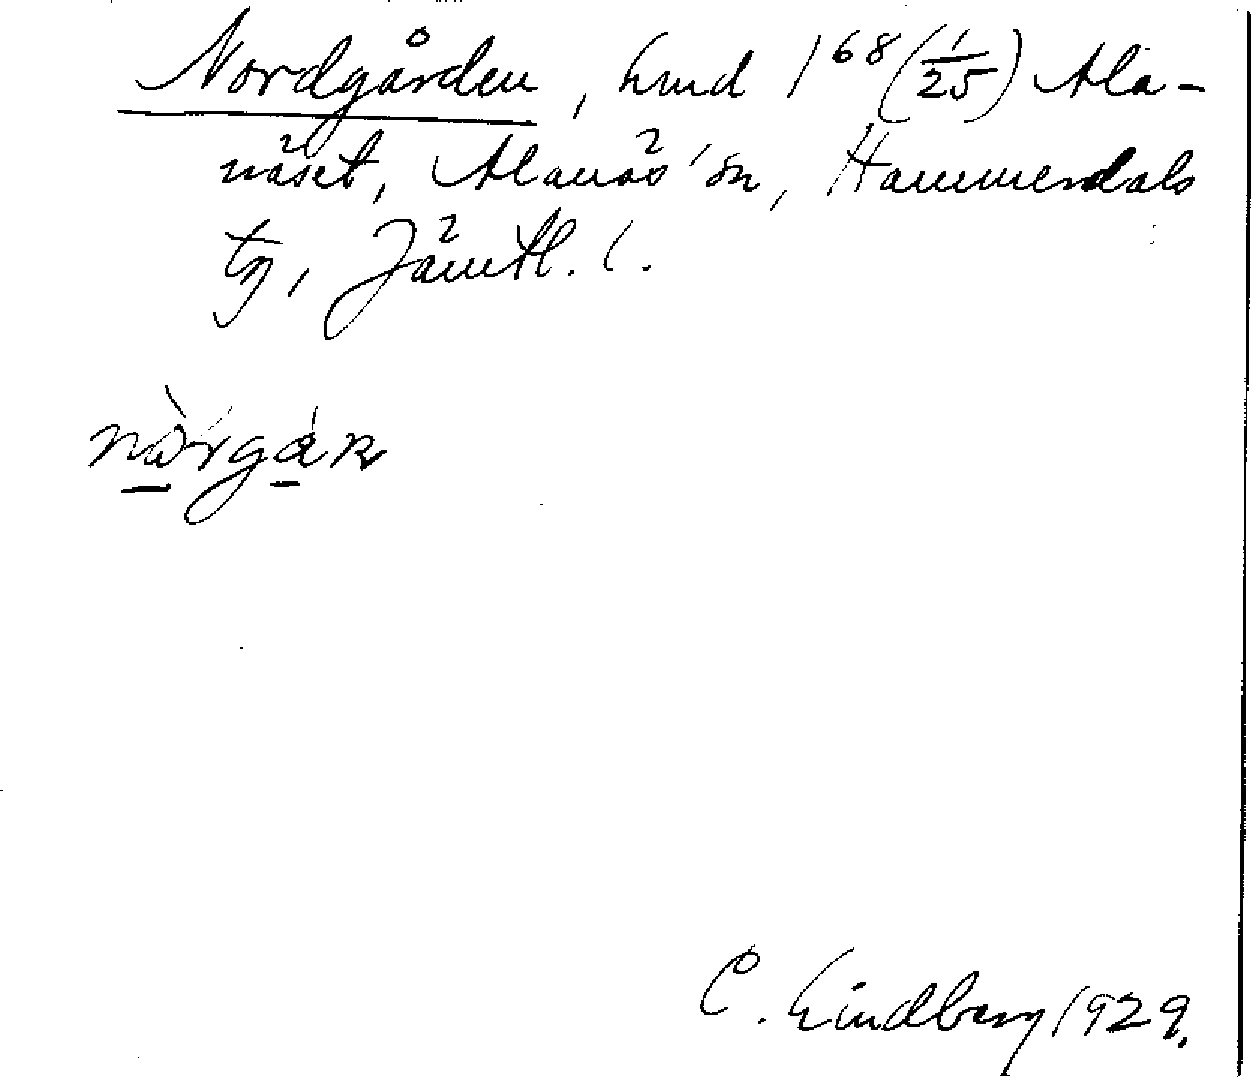 Nordgården, hmd 1⁶⁸(1/25) Ala-
näset, Alanäs sn, Hammerdals
tg, Jämtl. l.
C. Lindberg 1929.